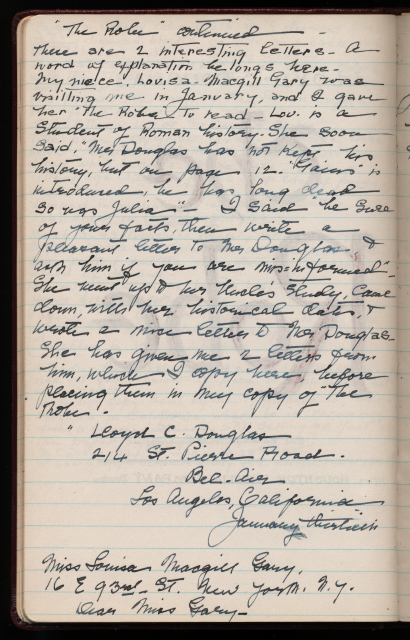 "The Robe" continued —
There are 2 interesting letters - A
word of explanation belongs here -
My niece - Louisa - Macgill Gary was
visiting me in January, and I gave
her "the Robe" to read - Lou. is a
Student of Roman history. She soon
said, "Mr Douglas has not kept his
history, but on page 12. "Gaius" is
introduced, he has long dead
so was Julia" - I said "be sure
of your facts, then write a
pleasant letter to Mr Douglas &
ask him if you are mis=informed" -
She went up to her Uncle's Study, Came
down, with her historical dates, &
wrote a nice letter to Mr Douglas -
She has given me 2 letters from
him, which I copy here, before
placing them in my copy of "The
Robe".
" Lloyd C. Douglas
214 St. Pierre Road.
Bel-Air
Los Angeles, California
January thirtieth
Miss Louisa Macgill Gary.
16 E 93rd St. New York. N.Y.
Dear Miss Gary -